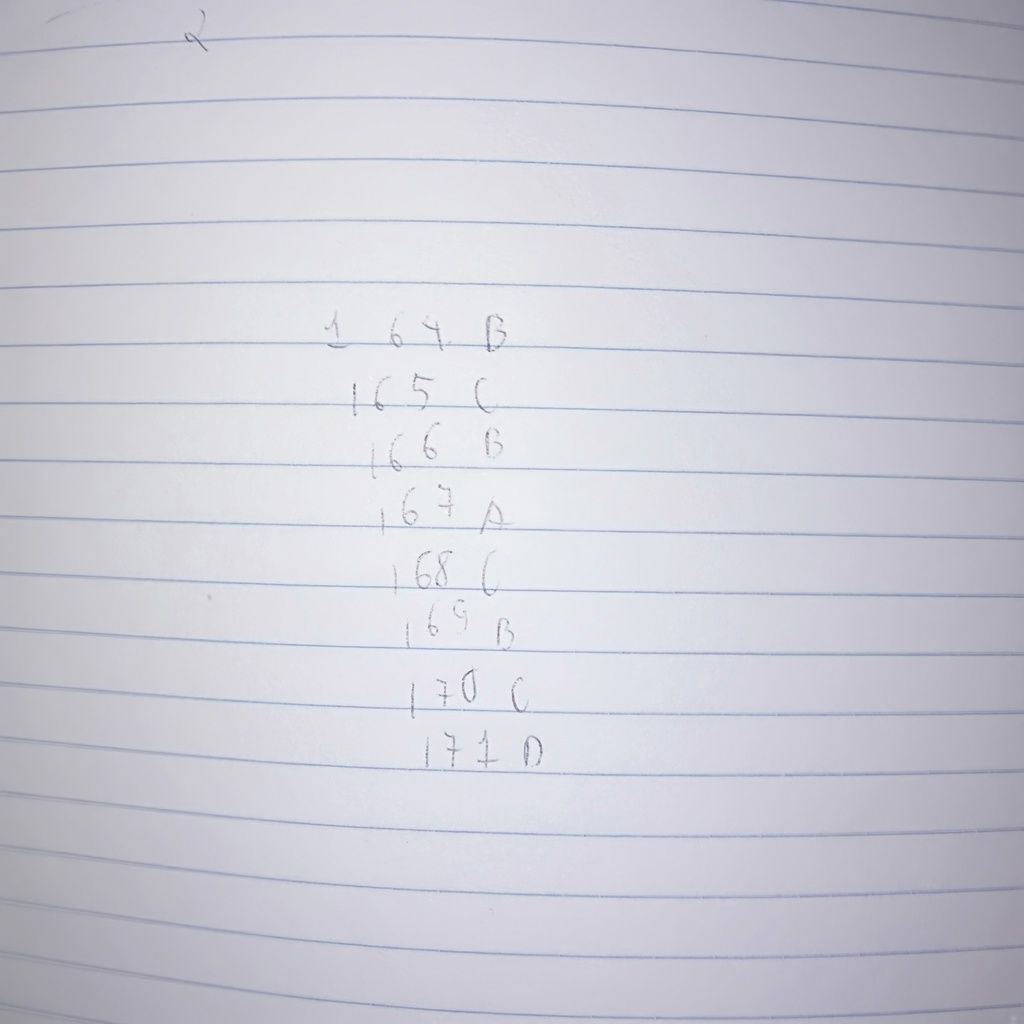 2
1 64 B
165 C
166 B
167 A
168 C
169 B
170 C
171 D